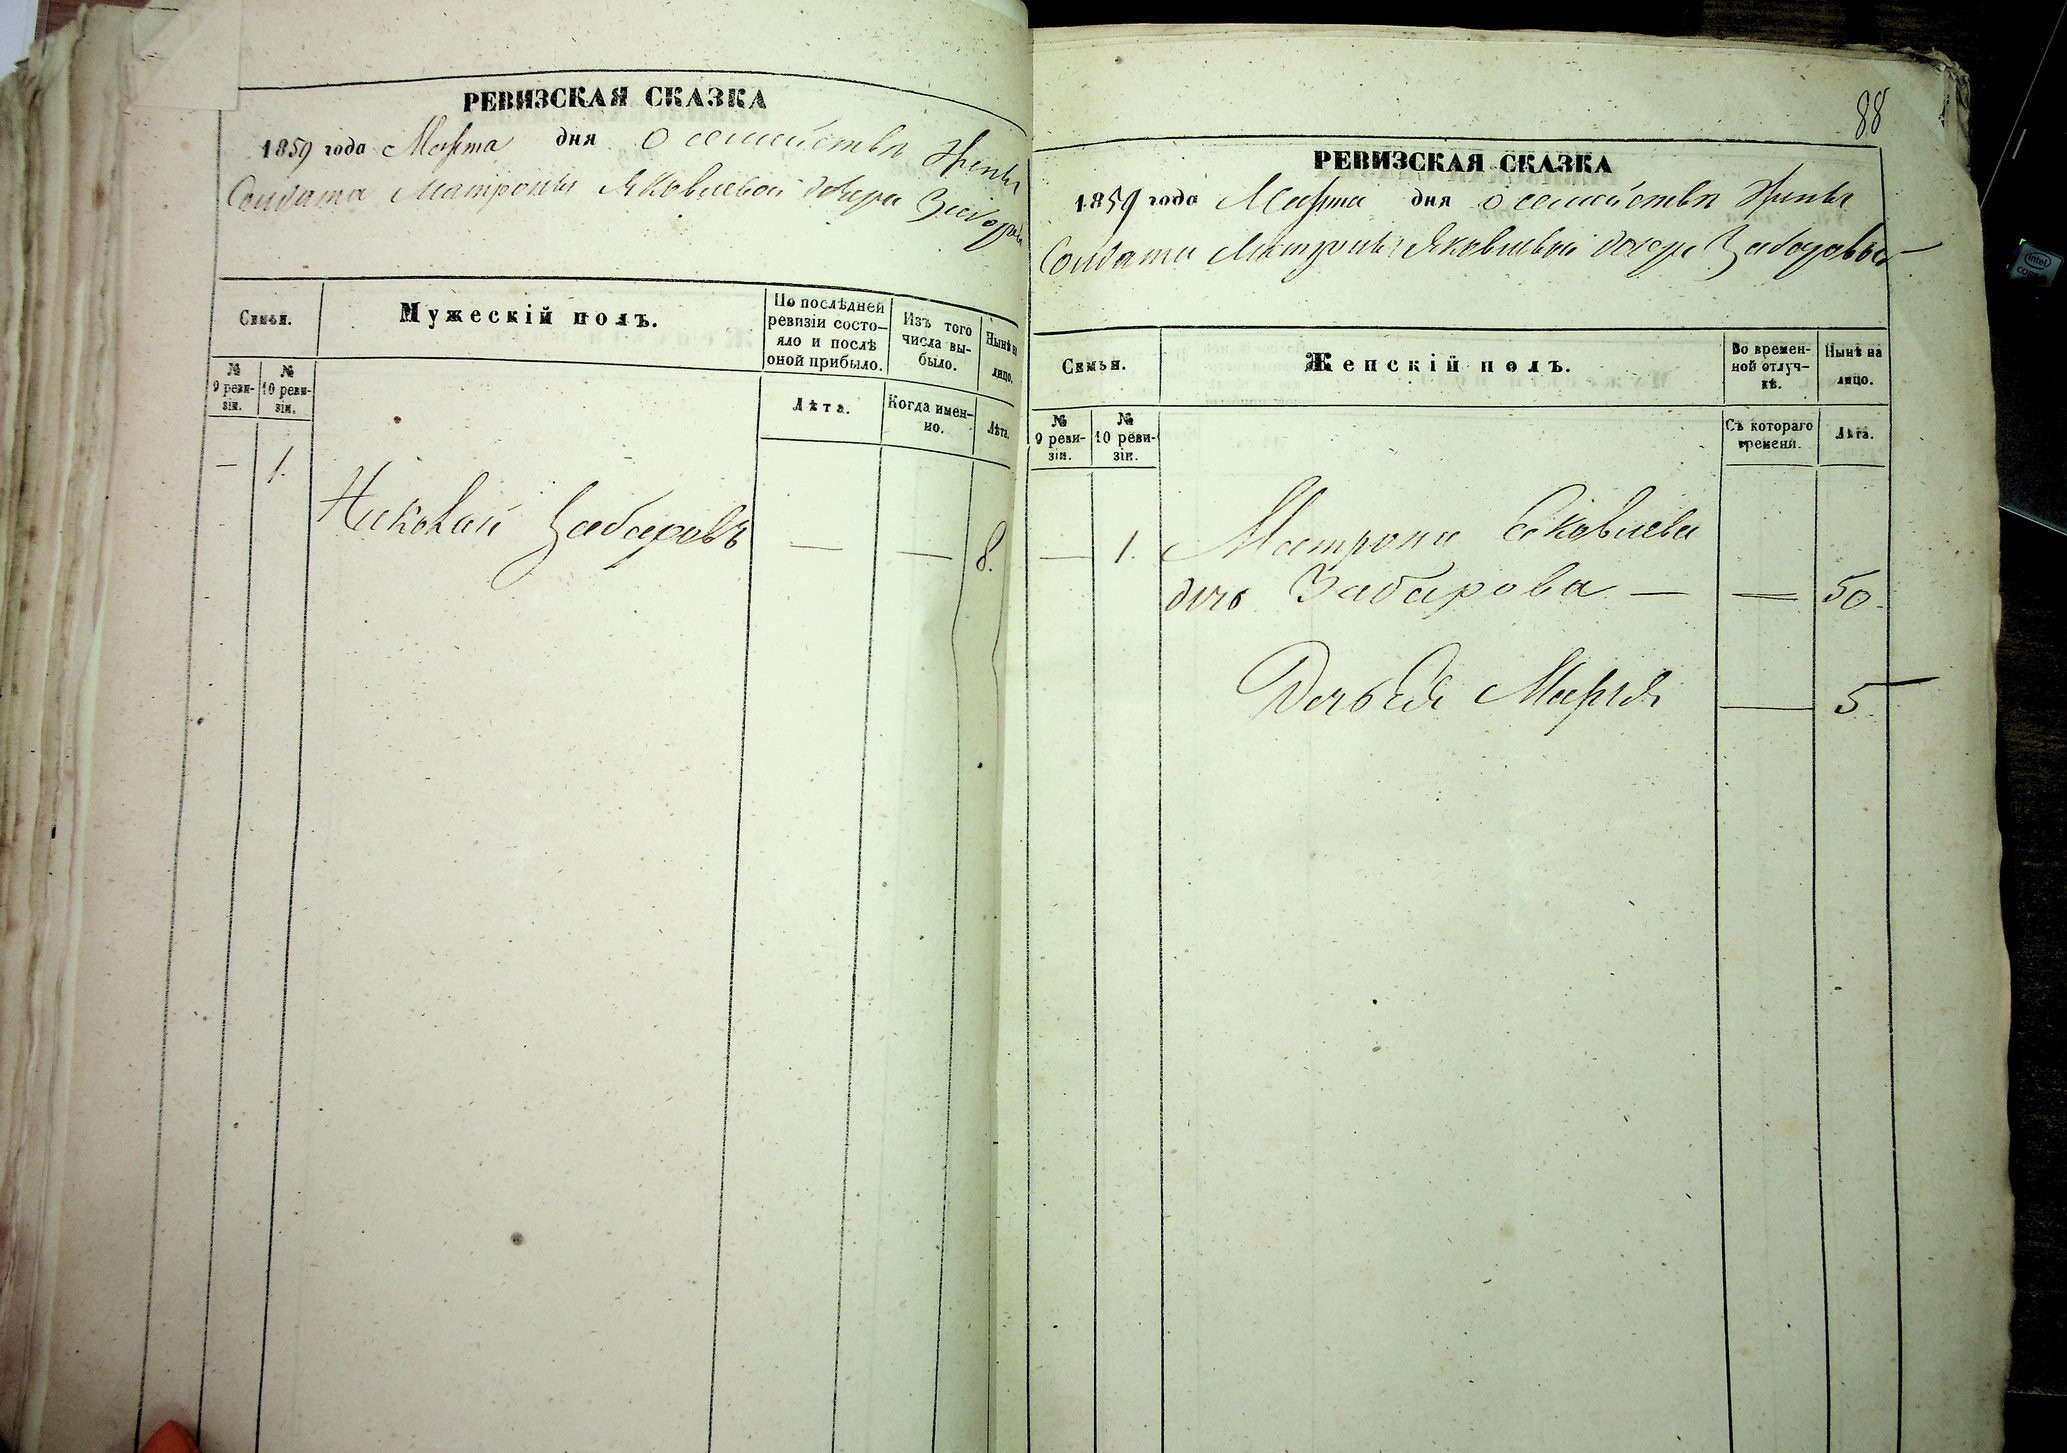 РЕВИЗСКАЯ СКАЗКА
1859 года Марта дня о семействѣ Жены
Солдата Матроны Яковлевой дочери
Семьи.
Мужескій полъ.
По послѣдней
ревизіи состо-
яло и послѣ
оной прибыло.
Изъ того
числа вы-
было.
Нынѣ на
лицо.
№
9 реви-
зіи.
№
10 реви-
зіи.
Лѣта.
Когда имен-
но.
Лѣта.
— 1.
Николай Забаровъ — — 8.
88
РЕВИЗСКАЯ СКАЗКА
1859 года Марта дня о семействѣ Жены
Солдата Матроны Яковлевой дочери Забаровой
Семьи.
Женскій полъ.
Во времен-
ной отлуч-
кѣ.
Нынѣ на
лицо.
№
9 реви-
зіи.
№
10 реви-
зіи.
Съ котораго
времени.
Лѣта.
— 1. Матрона Яковлева
дочь Забарова — — 50.
Дочь Ея Марія — 5
intel
CORE